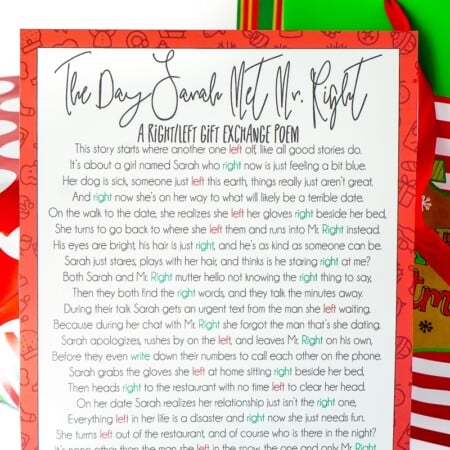 The Day Sarah Met Mr. Right
A RIGHT/LEFT GIFT EXCHANGE POEM
This story starts where another one left off, like all good stories do.
It's about a girl named Sarah who right now is just feeling a bit blue.
Her dog is sick, someone just left this earth, things really just aren't great.
And right now she's on her way to what will likely be a terrible date.
On the walk to the date, she realizes she left her gloves right beside her bed,
She turns to go back to where she left them and runs into Mr. Right instead.
His eyes are bright, his hair is just right, and he's as kind as someone can be.
Sarah just stares, plays with her hair, and thinks is he staring right at me?
Both Sarah and Mr. Right mutter hello not knowing the right thing to say,
Then they both find the right words, and they talk the minutes away.
During their talk Sarah gets an urgent text from the man she left waiting.
Because during her chat with Mr. Right she forgot the man that's she dating.
Sarah apologizes, rushes by on the left, and leaves Mr. Right on his own,
Before they even write down their numbers to call each other on the phone.
Sarah grabs the gloves she left at home sitting right beside her bed,
Then heads right to the restaurant with no time left to clear her head.
On her date Sarah realizes her relationship just isn't the right one,
Everything left in her life is a disaster and right now she just needs fun.
She turns left out of the restaurant, and of course who is there in the night?
It's none other than the man she left in the snow, the one and only Mr. Right.